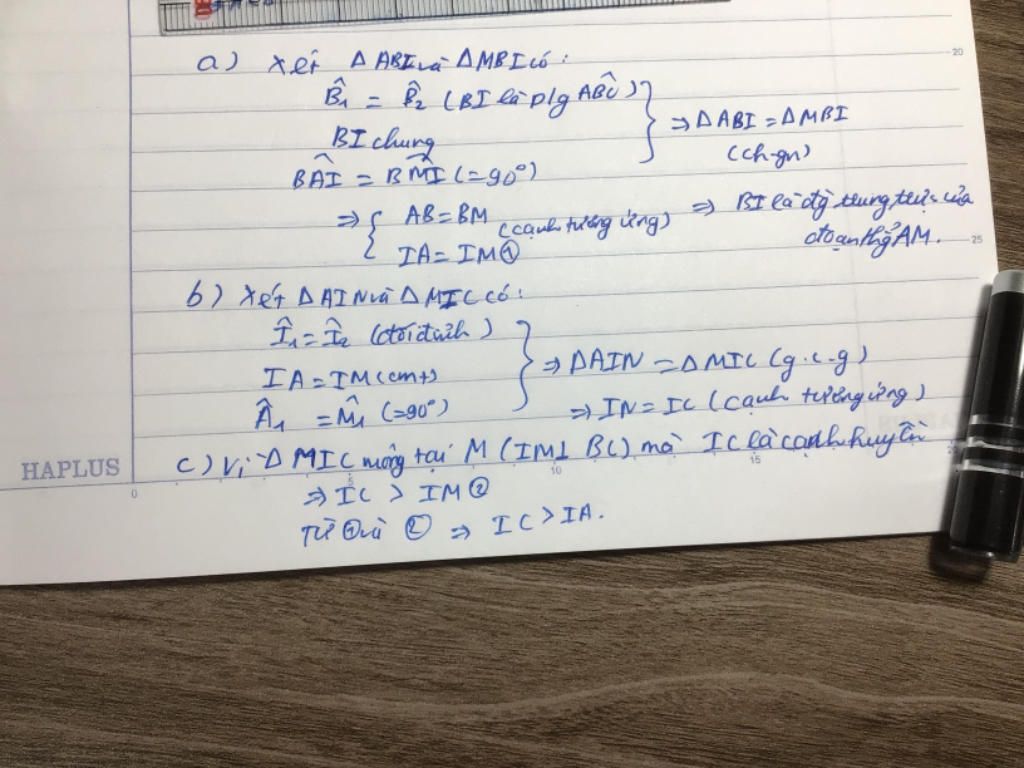 a) Xét Δ ABI và Δ MBI có:
B̂₁ = B̂₂ (BI là p/g ABĈ)
BI chung
⇒ Δ ABI = Δ MBI
(ch-gn)
BÂI = BM̂I (=90°)
⇒ { AB = BM
IA = IM ①
(cạnh tương ứng)
⇒ BI là đg trung trực của
đoạn thg AM.
b) Xét Δ AIN và Δ MIC có:
Î₁ = Î₂ (đối đỉnh)
IA = IM (cmt)
Â₁ = M̂₁ (=90°)
⇒ Δ AIN = Δ MIC (g.c.g)
⇒ IN = IC (cạnh tương ứng)
c) Vì Δ MIC tại M (IM ⊥ BC) mà IC là cạnh huyền
⇒ IC > IM ②
Từ ① và ② ⇒ IC > IA.
HAPLUS
0 5 10 15
20
25